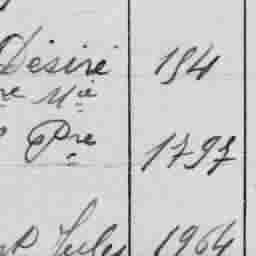 Désiré 154
re Mie
Pre 1797
Jules 1964